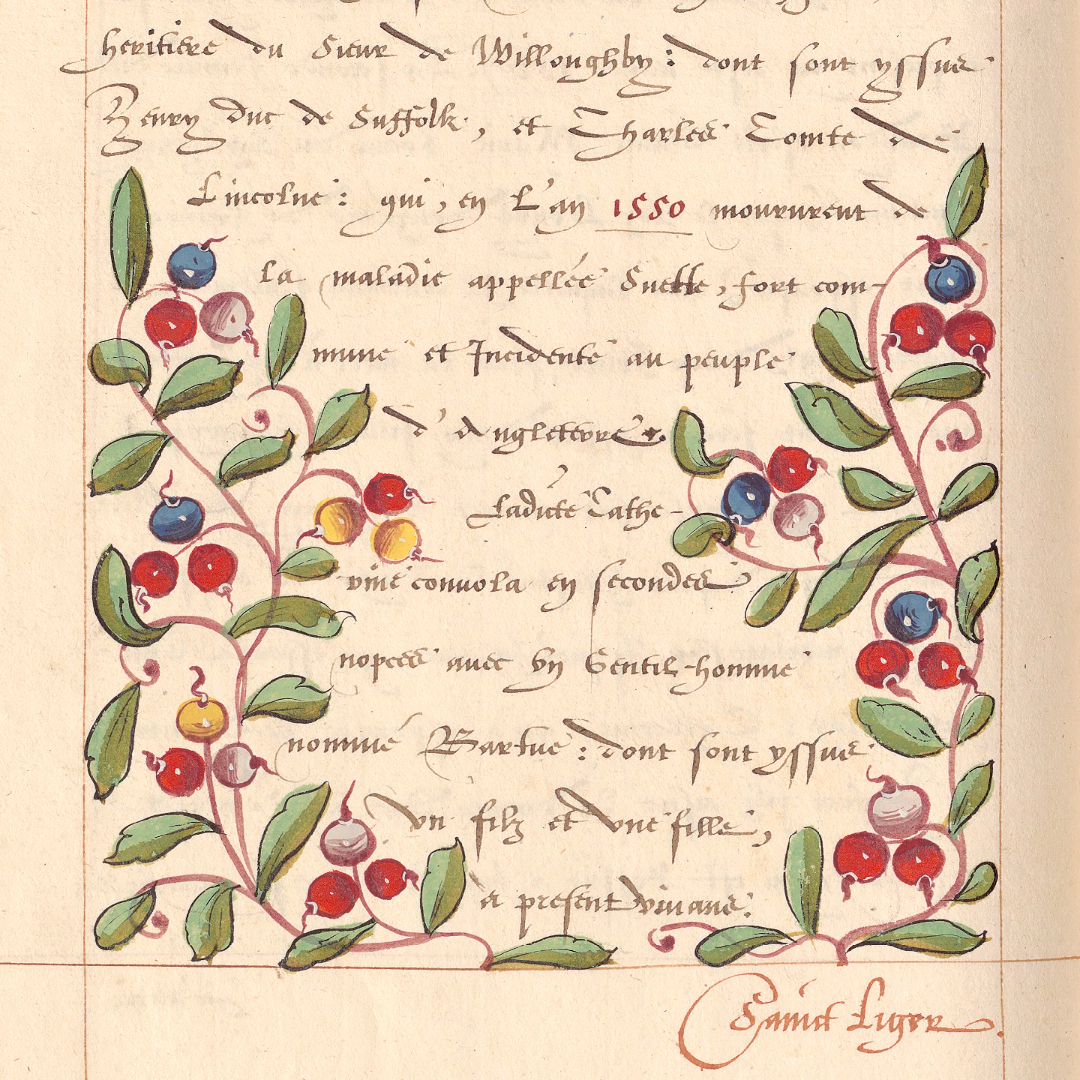 heritiere du Sieur de Willoughby: dont sont yssus
Henry duc de Suffolk, et Charles Comte de
Lincolne: qui, en L'an 1550 moururent de
la maladie appellée Suette, fort com-
mune et Incidente au peuple
d'Angleterre.
Ladicte Cathe-
rine convola en secondes
nopces avec un Gentil-homme
nommé Bartue: dont sont yssus
un filz et une fille,
a present vivans.
Sainct Liger.